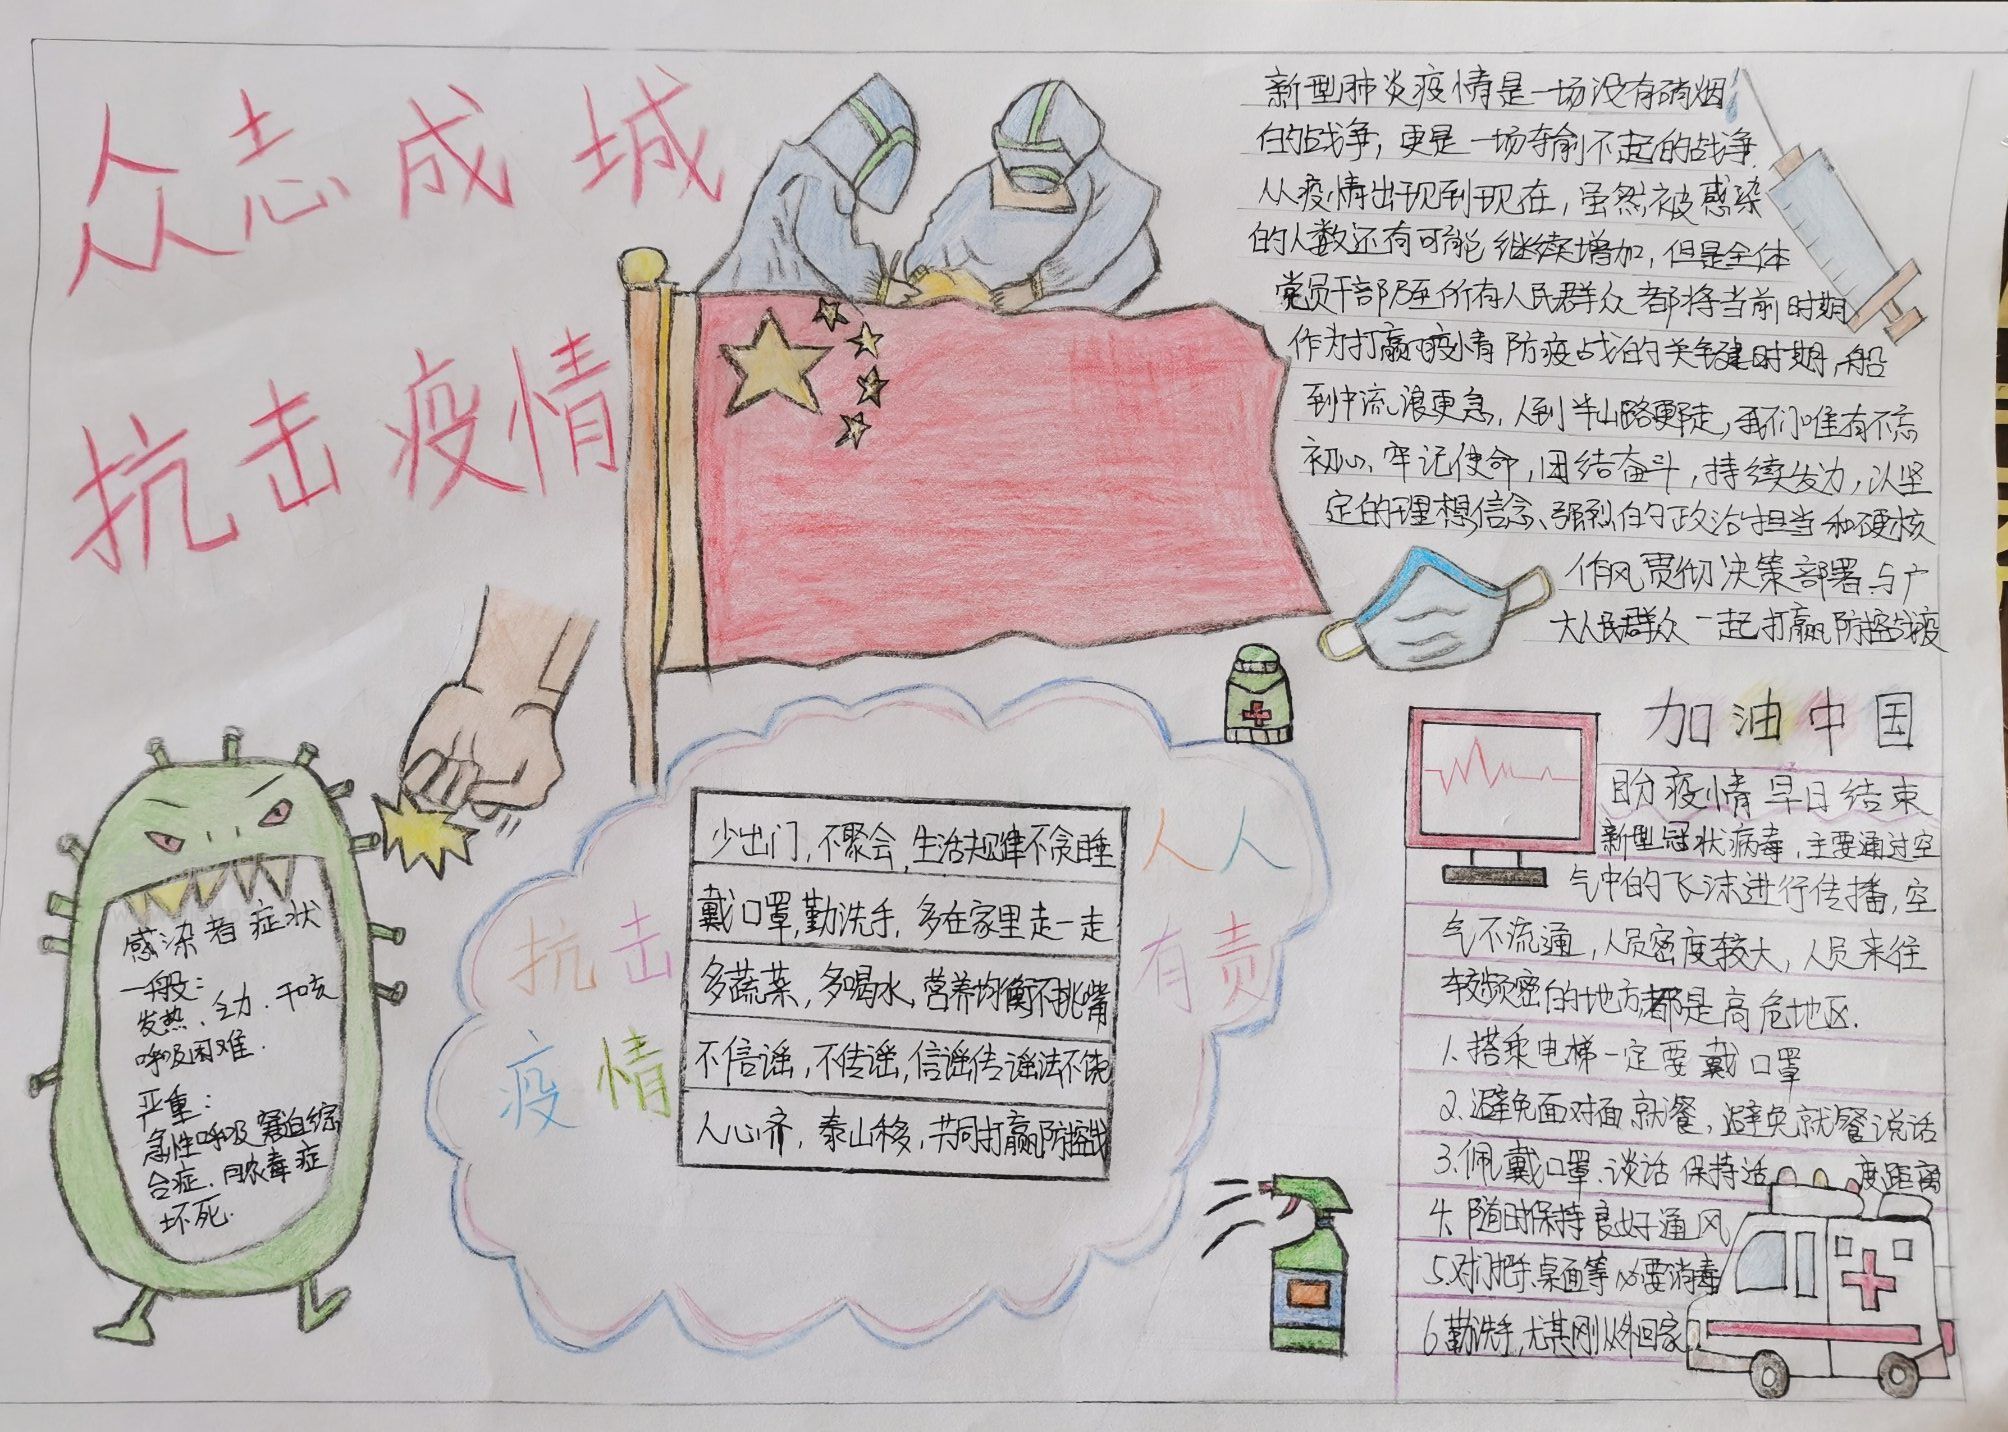 众志成城
抗击疫情
新型肺炎疫情是一场没有硝烟
的战争，更是一场夺输不起的战争.
从疫情出现到现在，虽然被感染
的人数还有可能继续增加，但是全体
党员干部乃至所有人民群众都将当前时期
作为打赢疫情防疫战的关键时期，船
到中流浪更急，人到半山路更陡，我们唯有不忘
初心、牢记使命，团结奋斗，持续发力，以坚
定的理想信念、强烈的政治担当和硬核
作风贯彻决策部署与广
大人民群众一起打赢防控战疫
感染者症状
一般：
发热、乏力、干咳
呼吸困难.
严重：
急性呼吸窘迫综
合症、内浓毒症
坏死.
抗击
疫情
人人
有责
少出门，不聚会，生活规律不贪睡
戴口罩，勤洗手，多在家里走一走
多蔬菜，多喝水，营养均衡不挑嘴
不信谣，不传谣，信谣传谣法不饶
人心齐，泰山移，共同打赢防控战
加油中国
盼疫情早日结束
新型冠状病毒，主要通过空
气中的飞沫进行传播，空
气不流通，人员密度较大，人员来往
较频密的地方，都是高危地区.
1.搭乘电梯一定要戴口罩
2.避免面对面就餐，避免就餐说话
3.佩戴口罩、谈话保持适度距离
4.随时保持良好通风
5.对门把手、桌面等必要消毒
6.勤洗手，尤其刚从外回家